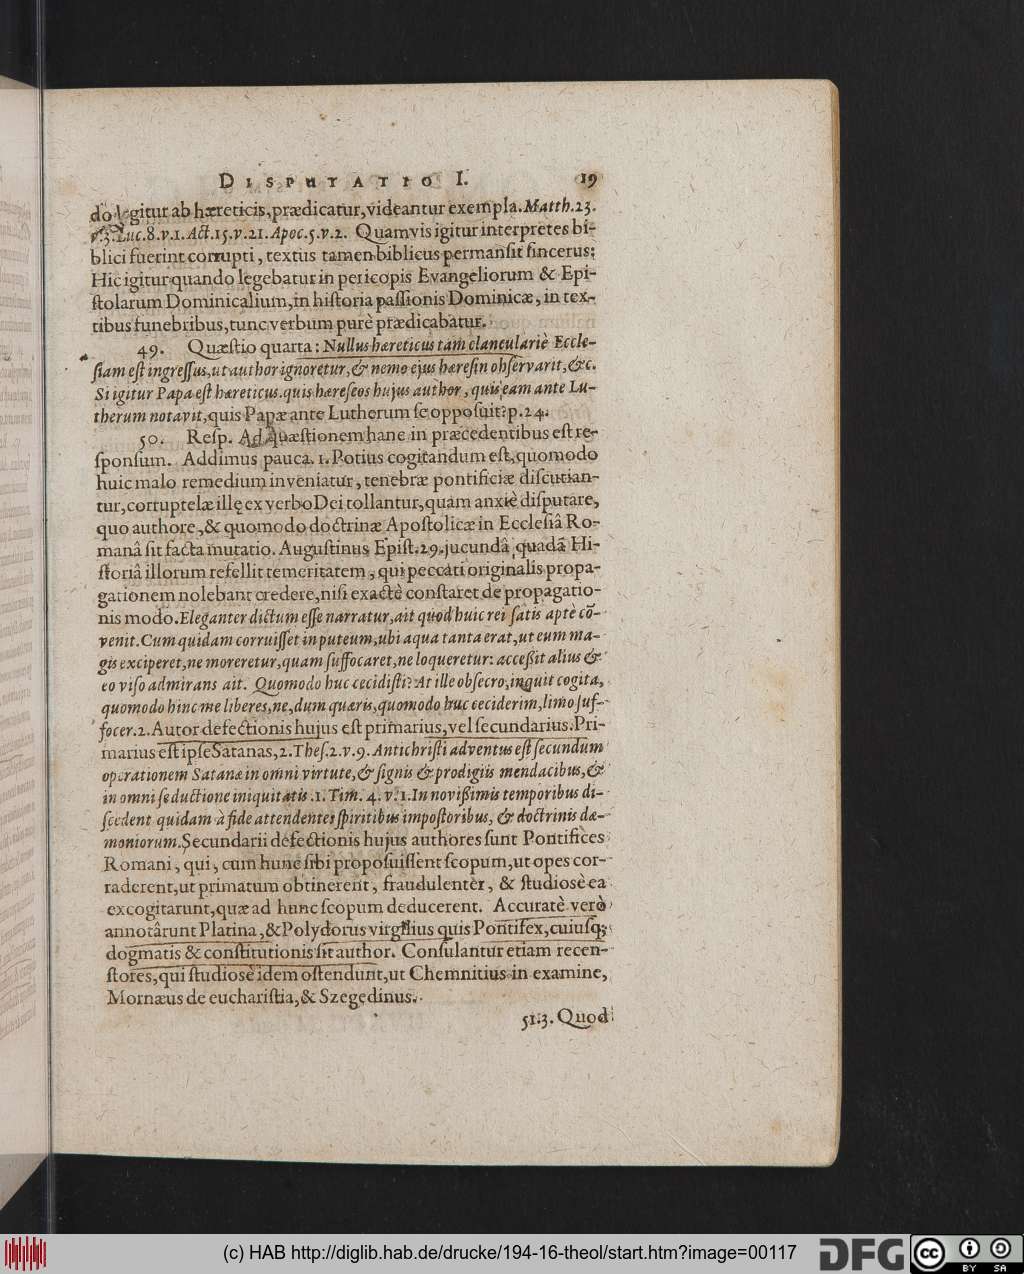 DISPUTATIO I. 19
do legitur ab hæreticis, prædicatur, videantur exempla. Matth. 23.
v. 3. Luc. 8. v. 1. Act. 15. v. 21. Apoc. 5. v. 2. Quamvis igitur interpretes bi-
blici fuerint corrupti, textus tamen biblicus permanſit ſincerus:
Hic igitur quando legebatur in pericopis Evangeliorum & Epi-
ſtolarum Dominicalium, in hiſtoria paſſionis Dominicæ, in tex-
tibus funebribus, tunc verbum purè prædicabatur.
49. Quæſtio quarta: Nullus hæreticus tam clanculariè Eccle-
ſiam eſt ingreſſus, ut author ignoretur, & nemo ejus hæreſin obſervarit, &c.
Si igitur Papa eſt hæreticus. quis hæreſeos hujus author, quis eam ante Lu-
therum notavit, quis Papæ ante Lutherum ſe oppoſuit? p. 24.
50. Reſp. Ad Quæſtionem hanc in præcedentibus eſt re-
ſponſum. Addimus pauca. 1. Potius cogitandum eſt, quomodo
huic malo remedium inveniatur, tenebræ pontificiæ diſcutian-
tur, corruptelæ illę ex verbo Dei tollantur, quam anxiè diſputare,
quo authore, & quomodo doctrinæ Apoſtolicæ in Eccleſiâ Ro-
manâ ſit facta mutatio. Auguſtinus Epiſt. 29. jucundâ quadã Hi-
ſtoriâ illorum refellit temeritatem, qui peccati originalis propa-
gationem nolebant credere, niſi exactè conſtaret de propagatio-
nis modo. Eleganter dictum eſſe narratur, ait quod huic rei ſatis aptè cõ-
venit. Cum quidam corruiſſet in puteum, ubi aqua tanta erat, ut eum ma-
gis exciperet, ne moreretur, quam ſuffocaret, ne loqueretur: acceßit alius &
eo viſo admirans ait. Quomodo huc cecidiſti? At ille obſecro, inquit cogita,
quomodo hinc me liberes, ne, dum quæris, quomodo huc ceciderim, limo ſuf-
focer. 2. Autor defectionis hujus eſt primarius, vel ſecundarius. Pri-
marius eſt ipſe Satanas, 2. Theſ. 2. v. 9. Antichriſti adventus eſt ſecundùm
operationem Satanæ in omni virtute, & ſignis & prodigiis mendacibus, &
in omni ſeductione iniquitatis. 1. Tim. 4. v. 1. In novißimis temporibus di-
ſcedent quidam à fide attendentes ſpiritibus impoſtoribus, & doctrinis dæ-
moniorum. Secundarii defectionis hujus authores ſunt Pontifices
Romani, qui, cum hunc ſibi propoſuiſſent ſcopum, ut opes cor-
raderent, ut primatum obtinerent, fraudulentèr, & ſtudiosè ea
excogitarunt, quæ ad hunc ſcopum deducerent. Accuratè verò
annotârunt Platina, & Polydorus virgilius quis Pontifex, cuiuſq;
dogmatis & conſtitutionis ſit author. Conſulantur etiam recen-
ſtores, qui ſtudiosè idem oſtendunt, ut Chemnitius in examine,
Mornæus de euchariſtia, & Szegedinus.
51. 3. Quod
(c) HAB http://diglib.hab.de/drucke/194-16-theol/start.htm?image=00117
DFG
cc BY SA